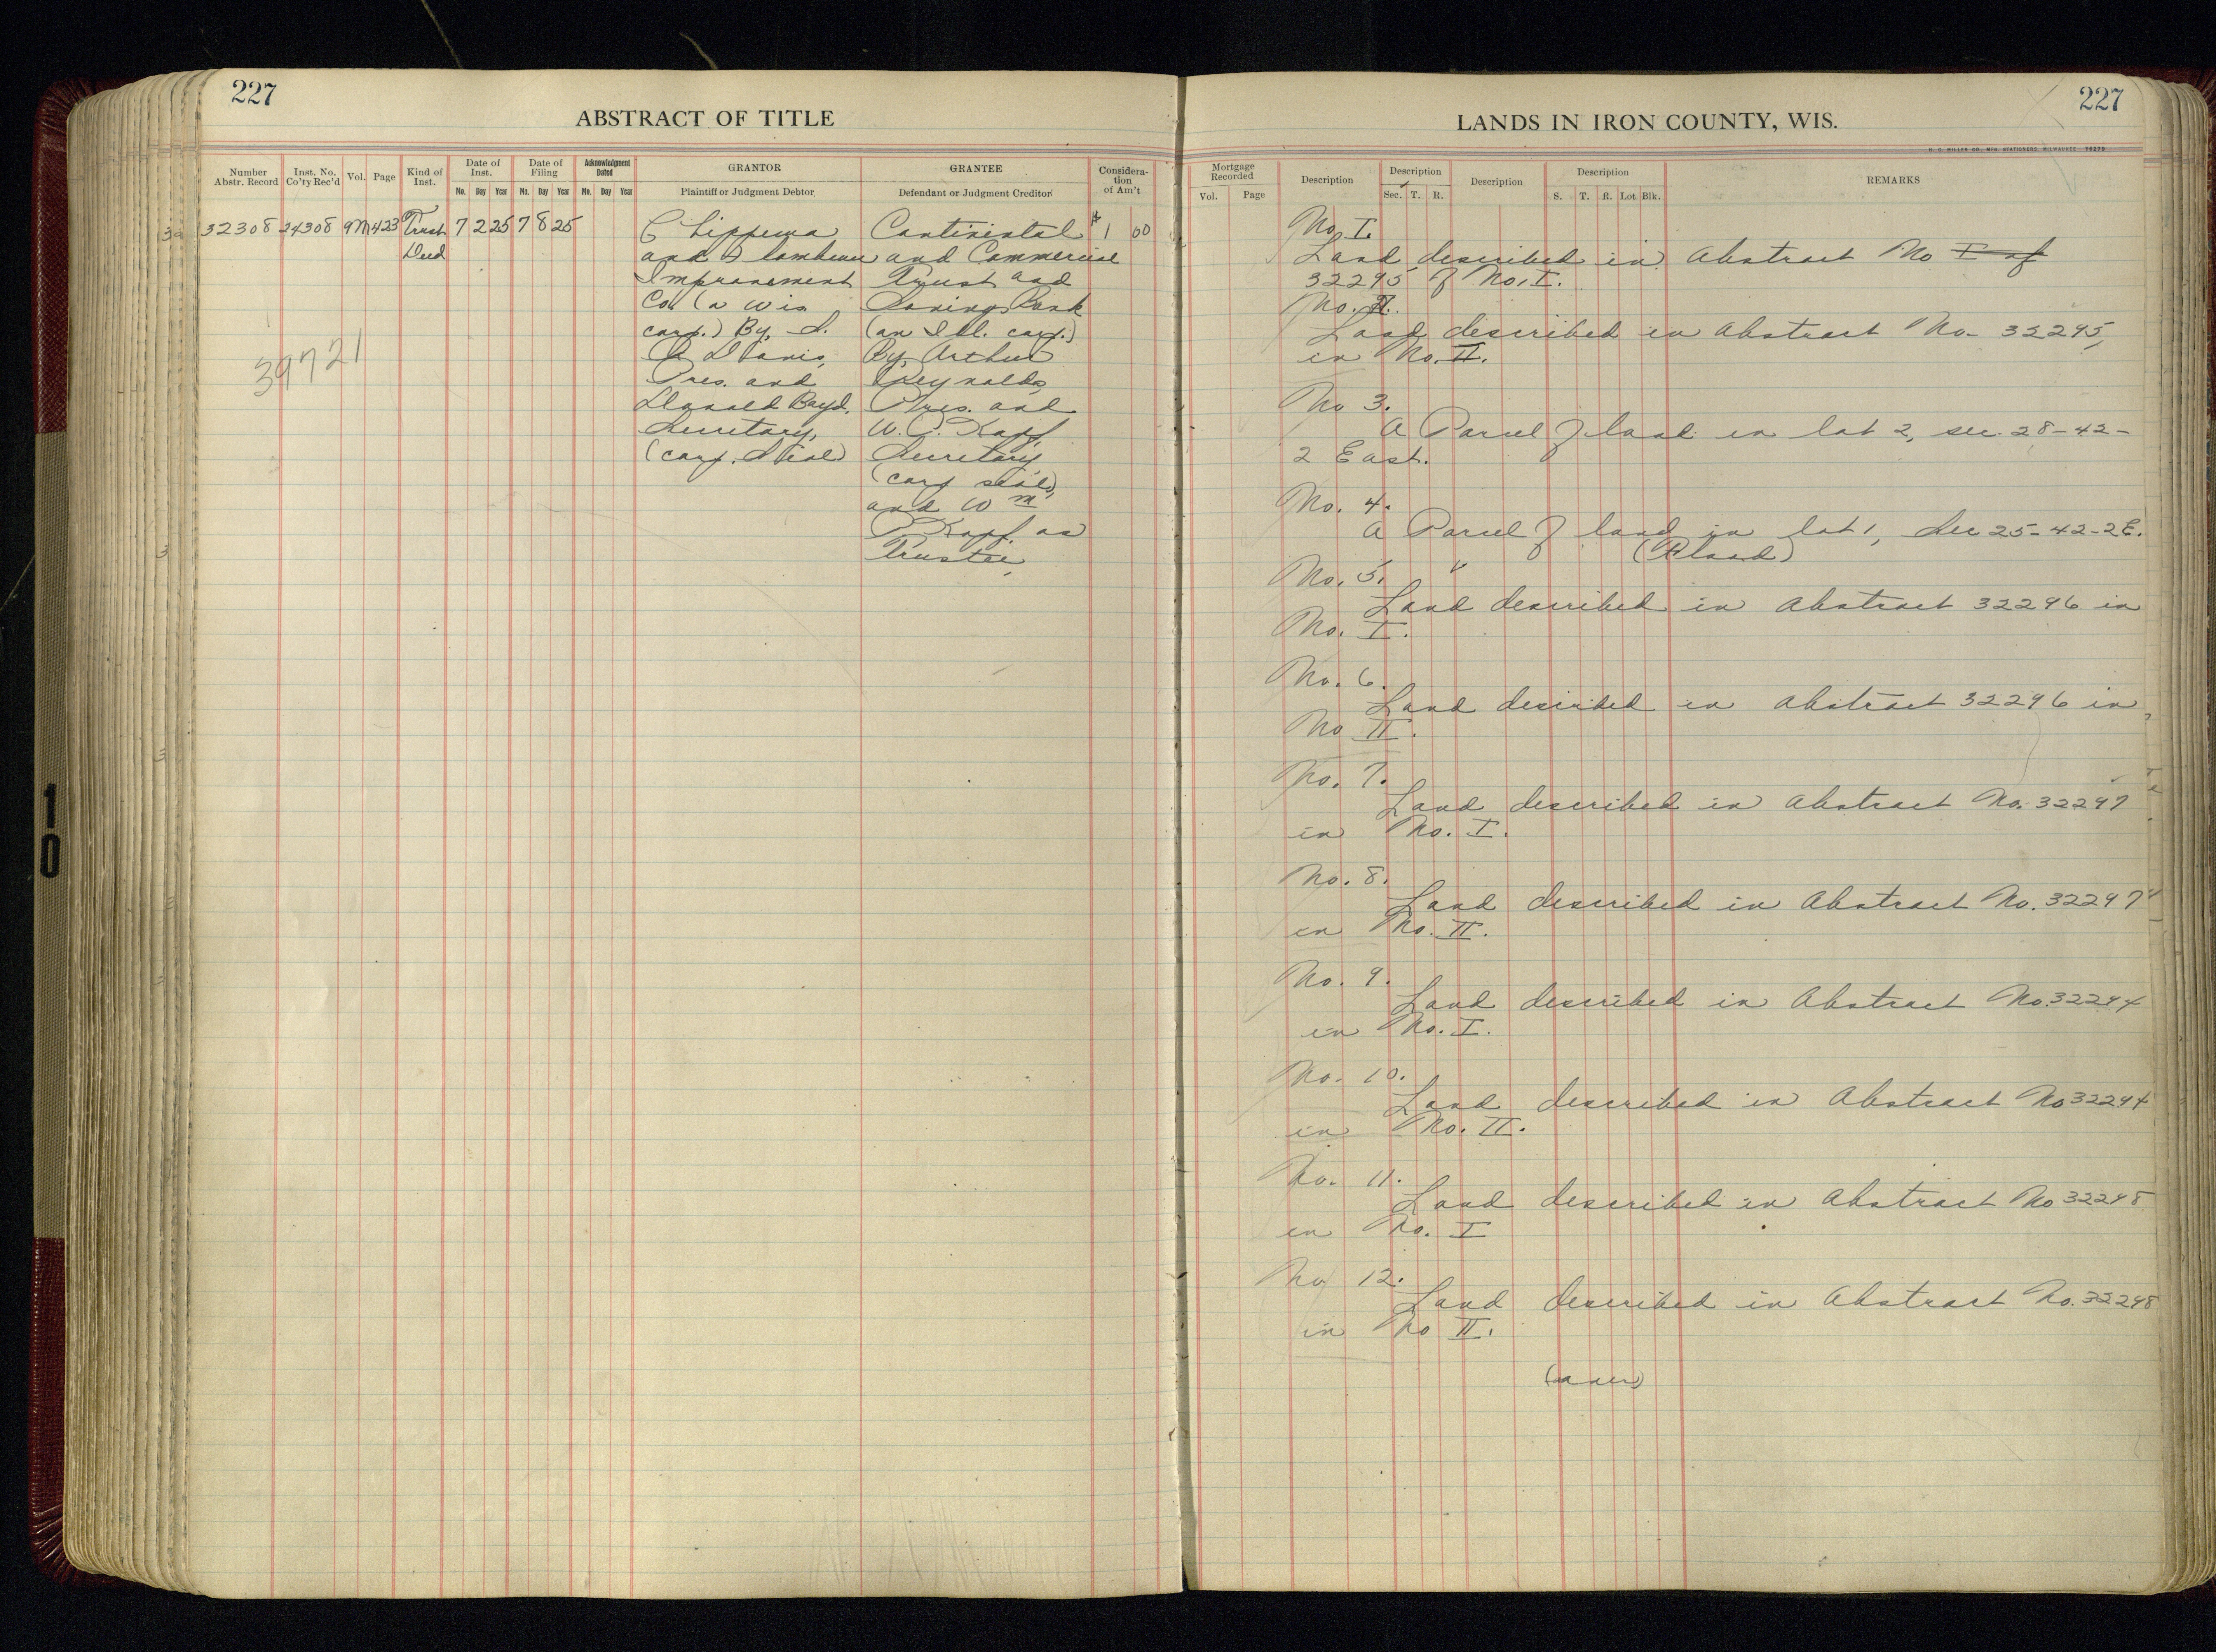 227
ABSTRACT OF TITLE
Number Abstr. Record
Inst. No. Co'ty Rec'd
Vol.
Page
Kind of Inst.
Date of Inst.
Mo. Day Year
Date of Filing
Mo. Day Year
Acknowledgment Dated
Mo. Day Year
GRANTOR
Plaintiff or Judgment Debtor
GRANTEE
Defendant or Judgment Creditor
Consideration of Am't
32308 24308 9M 423 Trust Deed 7 2 25 7 8 25
Chippewa
and Flambeau
Improvement
Co. (a Wis
corp.) By, S.
B Davis,
Pres. and
Donald Boyd,
Secretary,
(corp. Seal)
Continental
and Commercial
Trust and
Savings Bank
(an Ill. corp.)
By, Arthur
Reynolds,
Pres. and
W. P. Kopf,
Secretary,
(corp seal),
and Wm
P Kopf. as
Trustee,
$1 00
39721
227
LANDS IN IRON COUNTY, WIS.
H. C. MILLER CO., MFG. STATIONERS, MILWAUKEE
Mortgage Recorded
Vol. Page
Description
Description
Sec. T. R.
Description
Description
S. T. R. Lot Blk.
REMARKS
No. I.
Land described in Abstract No I of
32295 of No. I.
No. II.
Land described in Abstract No- 32295,
in No. II.
No 3.
A Parcel of land in lot 2, sec. 28-42-
2 East.
No. 4.
A Parcel of land in lot 1, Sec 25-42-2E.
No. 5.
Land described in Abstract 32296 in
No. I.
No. 6.
Land described in Abstract 32296 in
No II.
No. 7.
Land described in Abstract No. 32297
in No. I.
No. 8.
Land described in Abstract No. 32297
in No. II.
No. 9.
Land described in Abstract No. 32294
in No. I.
No. 10.
Land described in Abstract No 32294
in No. II.
No. 11.
Land described in Abstract No 32298
in No. I
No 12.
Land described in Abstract No. 32298
in No II.
(over)
10